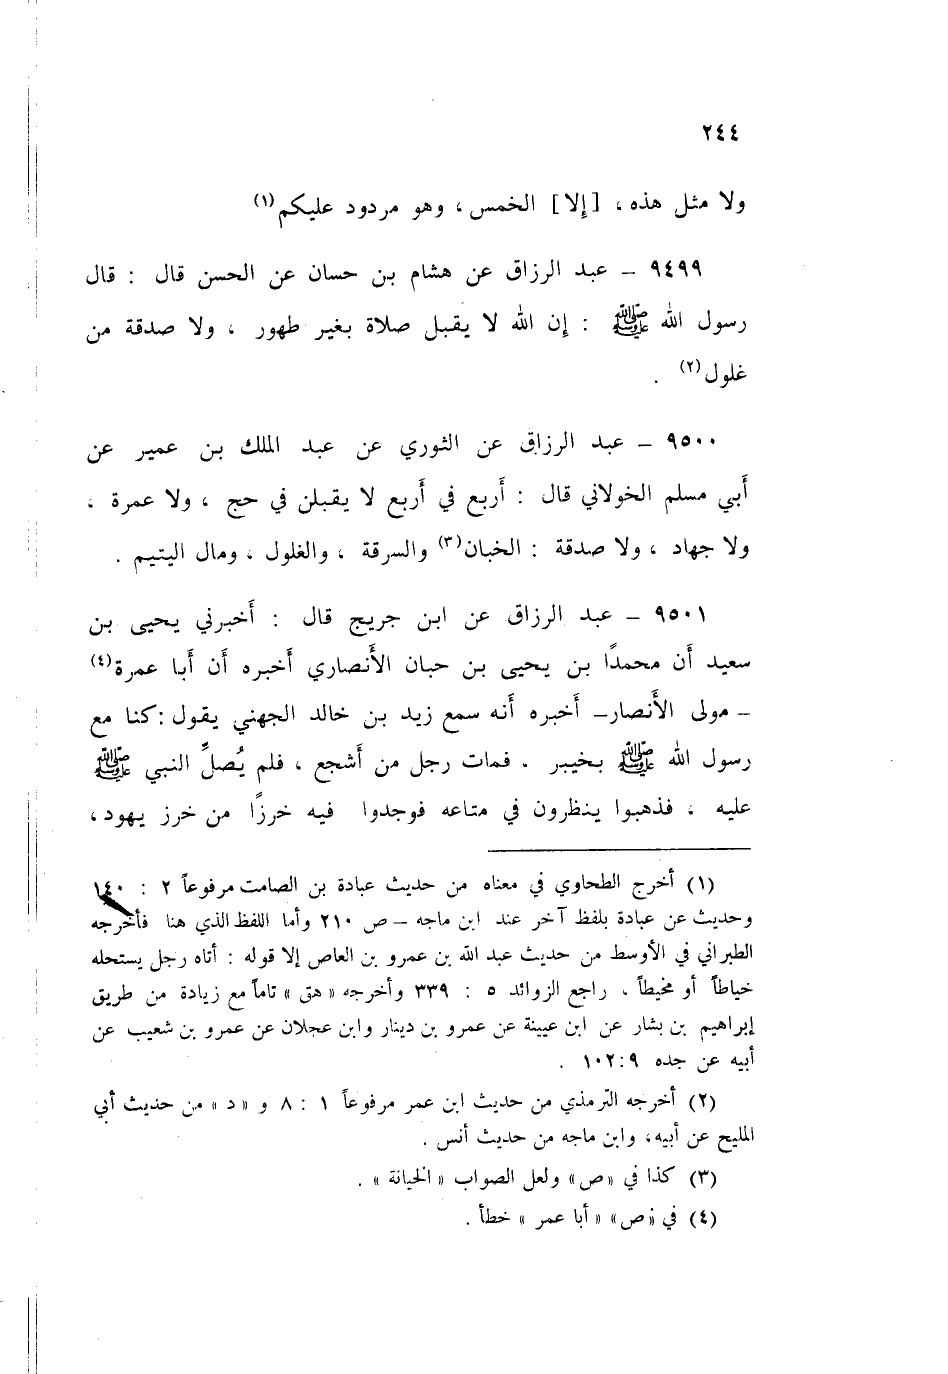 ٢٤٤
ولا مثل هذه ، [إلا] الخمس ، وهو مردود عليكم(١)
٩٤٩٩ – عبد الرزاق عن هشام بن حسان عن الحسن قال : قال
رسول الله ﷺ : إن الله لا يقبل صلاة بغير طهور ، ولا صدقة من
غلول(٢) .
٩٥٠٠ – عبد الرزاق عن الثوري عن عبد الملك بن عمير عن
أَبي مسلم الخولاني قال : أَربع في أَربع لا يقبلن في حج ، ولا عمرة ،
ولا جهاد ، ولا صدقة : الخبان(٣) والسرقة ، والغلول ، ومال اليتيم .
٩٥٠١ – عبد الرزاق عن ابن جريج قال : أَخبرني يحيى بن
سعيد أَن محمدًا بن يحيى بن حبان الأَنصاري أَخبره أَن أَبا عمرة(٤)
– مولى الأَنصار– أَخبره أَنه سمع زيد بن خالد الجهني يقول : كنا مع
رسول الله ﷺ بخيبر . فمات رجل من أَشجع ، فلم يُصلِّ النبي ﷺ
عليه ، فذهبوا ينظرون في متاعه فوجدوا فيه خرزًا من خرز يهود ،
(١) أخرج الطحاوي في معناه من حديث عبادة بن الصامت مرفوعاً ٢ : ١٤٠
وحديث عن عبادة بلفظ آخر عند ابن ماجه – ص ٢١٠ وأما اللفظ الذي هنا فأخرجه
الطبراني في الأوسط من حديث عبد الله بن عمرو بن العاص إلا قوله : أتاه رجل يستحله
خياطاً أو مخيطاً ، راجع الزوائد ٥ : ٣٣٩ وأخرجه «هق» تاماً مع زيادة من طريق
إبراهيم بن بشار عن ابن عيينة عن عمرو بن دينار وابن عجلان عن عمرو بن شعيب عن
أبيه عن جده ٩ : ١٠٢ .
(٢) أخرجه الترمذي من حديث ابن عمر مرفوعاً ١ : ٨ و «د» من حديث أبي
المليح عن أبيه، وابن ماجه من حديث أنس .
(٣) كذا في «ص» ولعل الصواب «الخيانة» .
(٤) في «ص» «أبا عمر» خطأ .